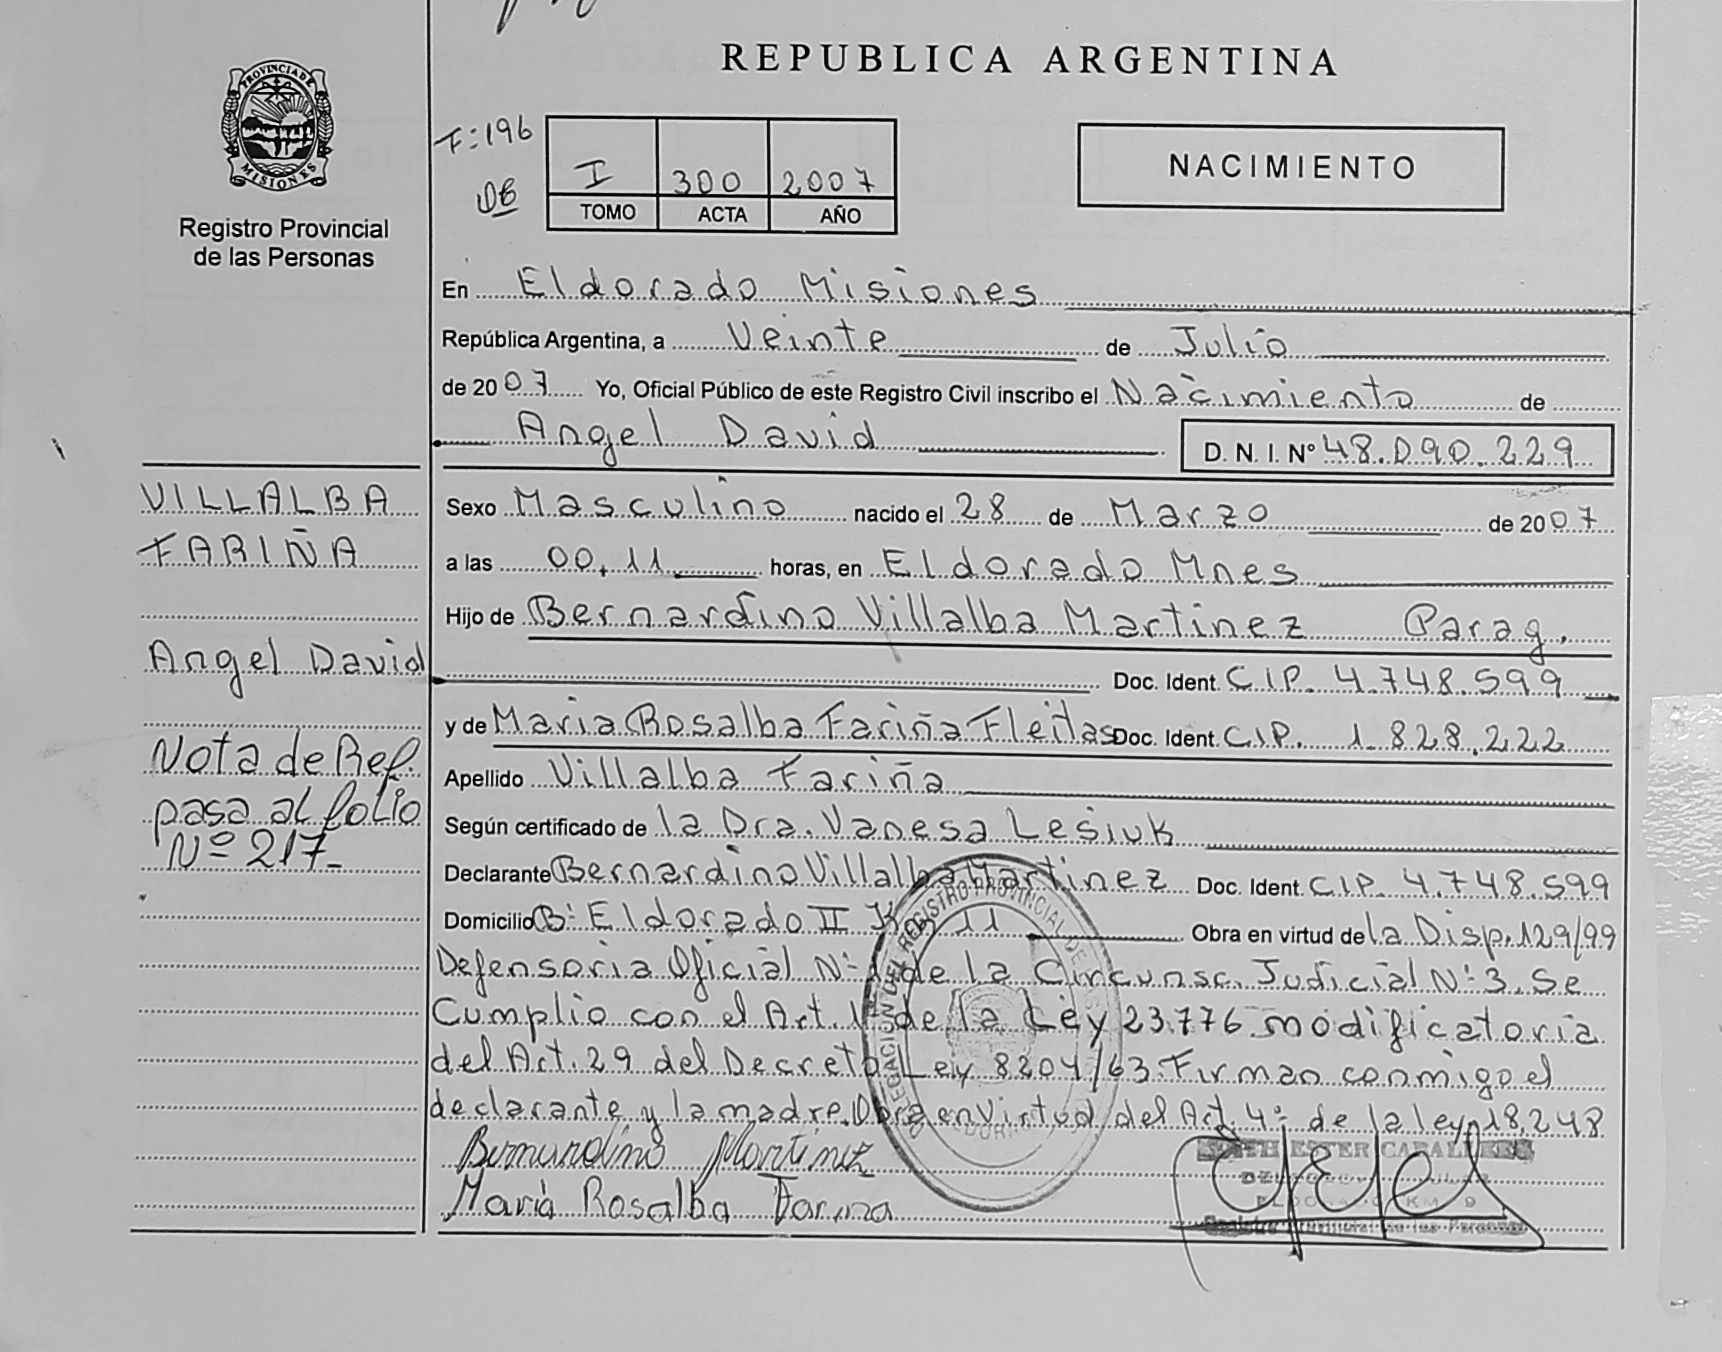 REPUBLICA ARGENTINA
PROVINCIA DE MISIONES
Registro Provincial
de las Personas
F:196
I 300 2007
TOMO ACTA AÑO
NACIMIENTO
En Eldorado Misiones
República Argentina, a Veinte de Julio
de 2007 Yo, Oficial Público de este Registro Civil inscribo el Nacimiento de
Angel David D. N. I. Nº 48.090.229
VILLALBA
FARIÑA
Angel David
Nota de Ref.
pasa al folio
Nº 217-
Sexo Masculino nacido el 28 de Marzo de 2007
a las 00,11 horas, en Eldorado Mnes
Hijo de Bernardino Villalba Martinez Parag.
Doc. Ident. C.I.P. 4.748.599
y de Maria Rosalba Fariña Fleitas Doc. Ident. C.I.P. 1.828.222
Apellido Villalba Fariña
Según certificado de la Dra. Vanesa Lesiuk
Declarante Bernardino Villalba Martinez Doc. Ident. C.I.P. 4.748.599
Domicilio B: Eldorado II Km 11 Obra en virtud de la Disp.129/99
Defensoria Oficial Nº 1 de la Circunsc. Judicial Nº 3. Se
Cumplio con el Art. de la Ley 23.776 modificatoria
del Art. 29 del Decreto Ley 8204/63. Firman conmigo el
declarante y la madre. Obra en Virtud del Art. 4º de la ley 18.248
Bernardino Martinez
María Rosalba Farina
ESTER CABALLERO
ELDORADO KM 9
Registro Provincial de las Personas
DELEGACION DEL REGISTRO PROVINCIAL DE